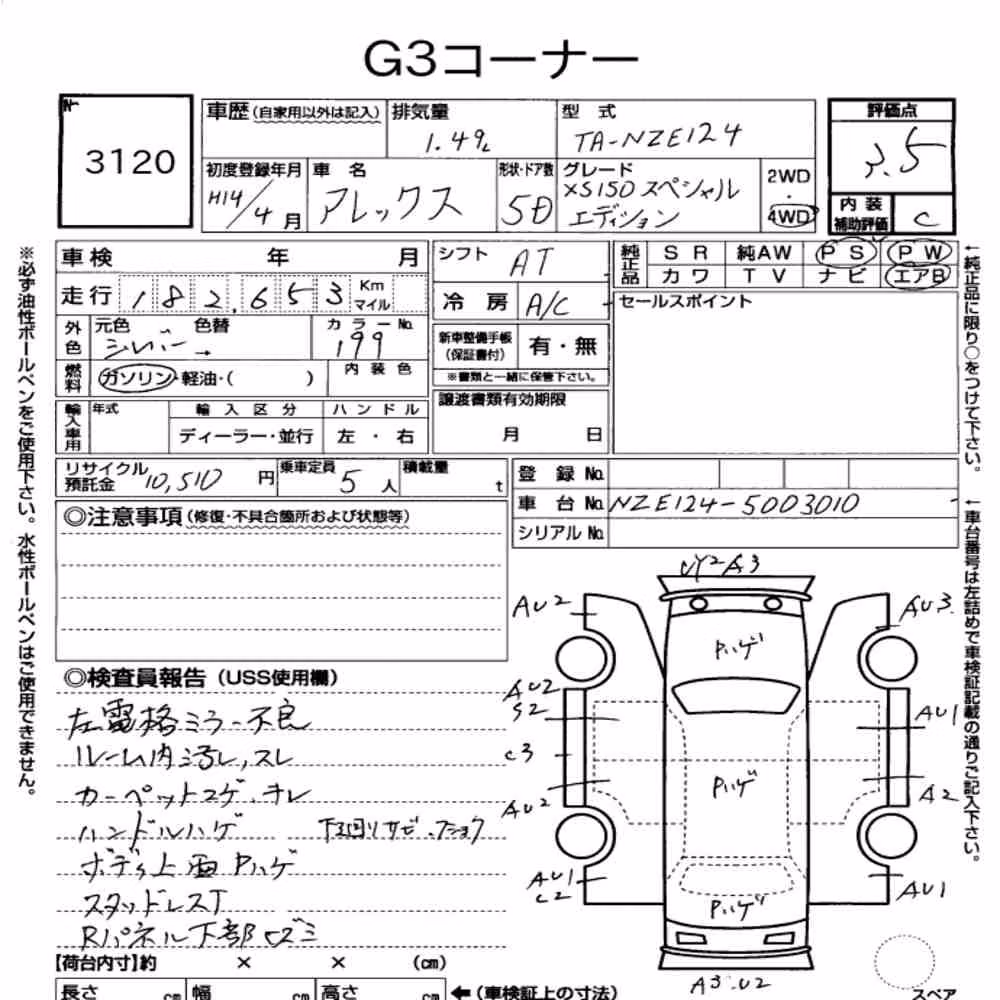 G3コーナー
No.
3120
車歴(自家用以外は記入) 排気量 1.49L 型式 TA-NZE124
評価点 3.5
初度登録年月 H14/4月 車名 アレックス 形状・ドア数 5D グレード XS150スペシャルエディション 2WD・4WD
内装補助評価 C
車検 年 月
シフト AT
純正品 SR 純AW PS PW
カワ TV ナビ エアB
走行 182,653 Km マイル
冷房 A/C
セールスポイント
外色 元色 シルバー → 色替 カラーNo. 199
新車整備手帳(保証書付) 有・無
※書類と一緒に保管下さい。
燃料 ガソリン・軽油・( ) 内装色
輸入車用 年式 輸入区分 ハンドル
ディーラー・並行 左・右
譲渡書類有効期限
月 日
リサイクル預託金 10,510円 乗車定員 5人 積載量 t
登録No.
車台No. NZE124-5003010
シリアルNo.
◎注意事項(修復・不具合箇所および状態等)
◎検査員報告(USS使用欄)
左電格ミラー不良
ルーム内汚レ,スレ
カーペットコゲ・キレ
ハンドルハゲ 下回りサビ・フショク
ボディ上面Pハゲ
スタッドレスT
Rパネル下部ロズミ
【荷台内寸】約 × × (cm)
長さ cm 幅 cm 高さ cm ←(車検証上の寸法)
AU2
AU3
Pハゲ
AU2
S2
AU1
C3
Pハゲ
AU2
A2
AU1
C2
AU1
Pハゲ
A3・U2
スペア
※必ず油性ボールペンをご使用下さい。水性ボールペンはご使用できません。
←純正品に限り○をつけて下さい。
←車台番号は左詰めで車検証記載の通りご記入下さい。